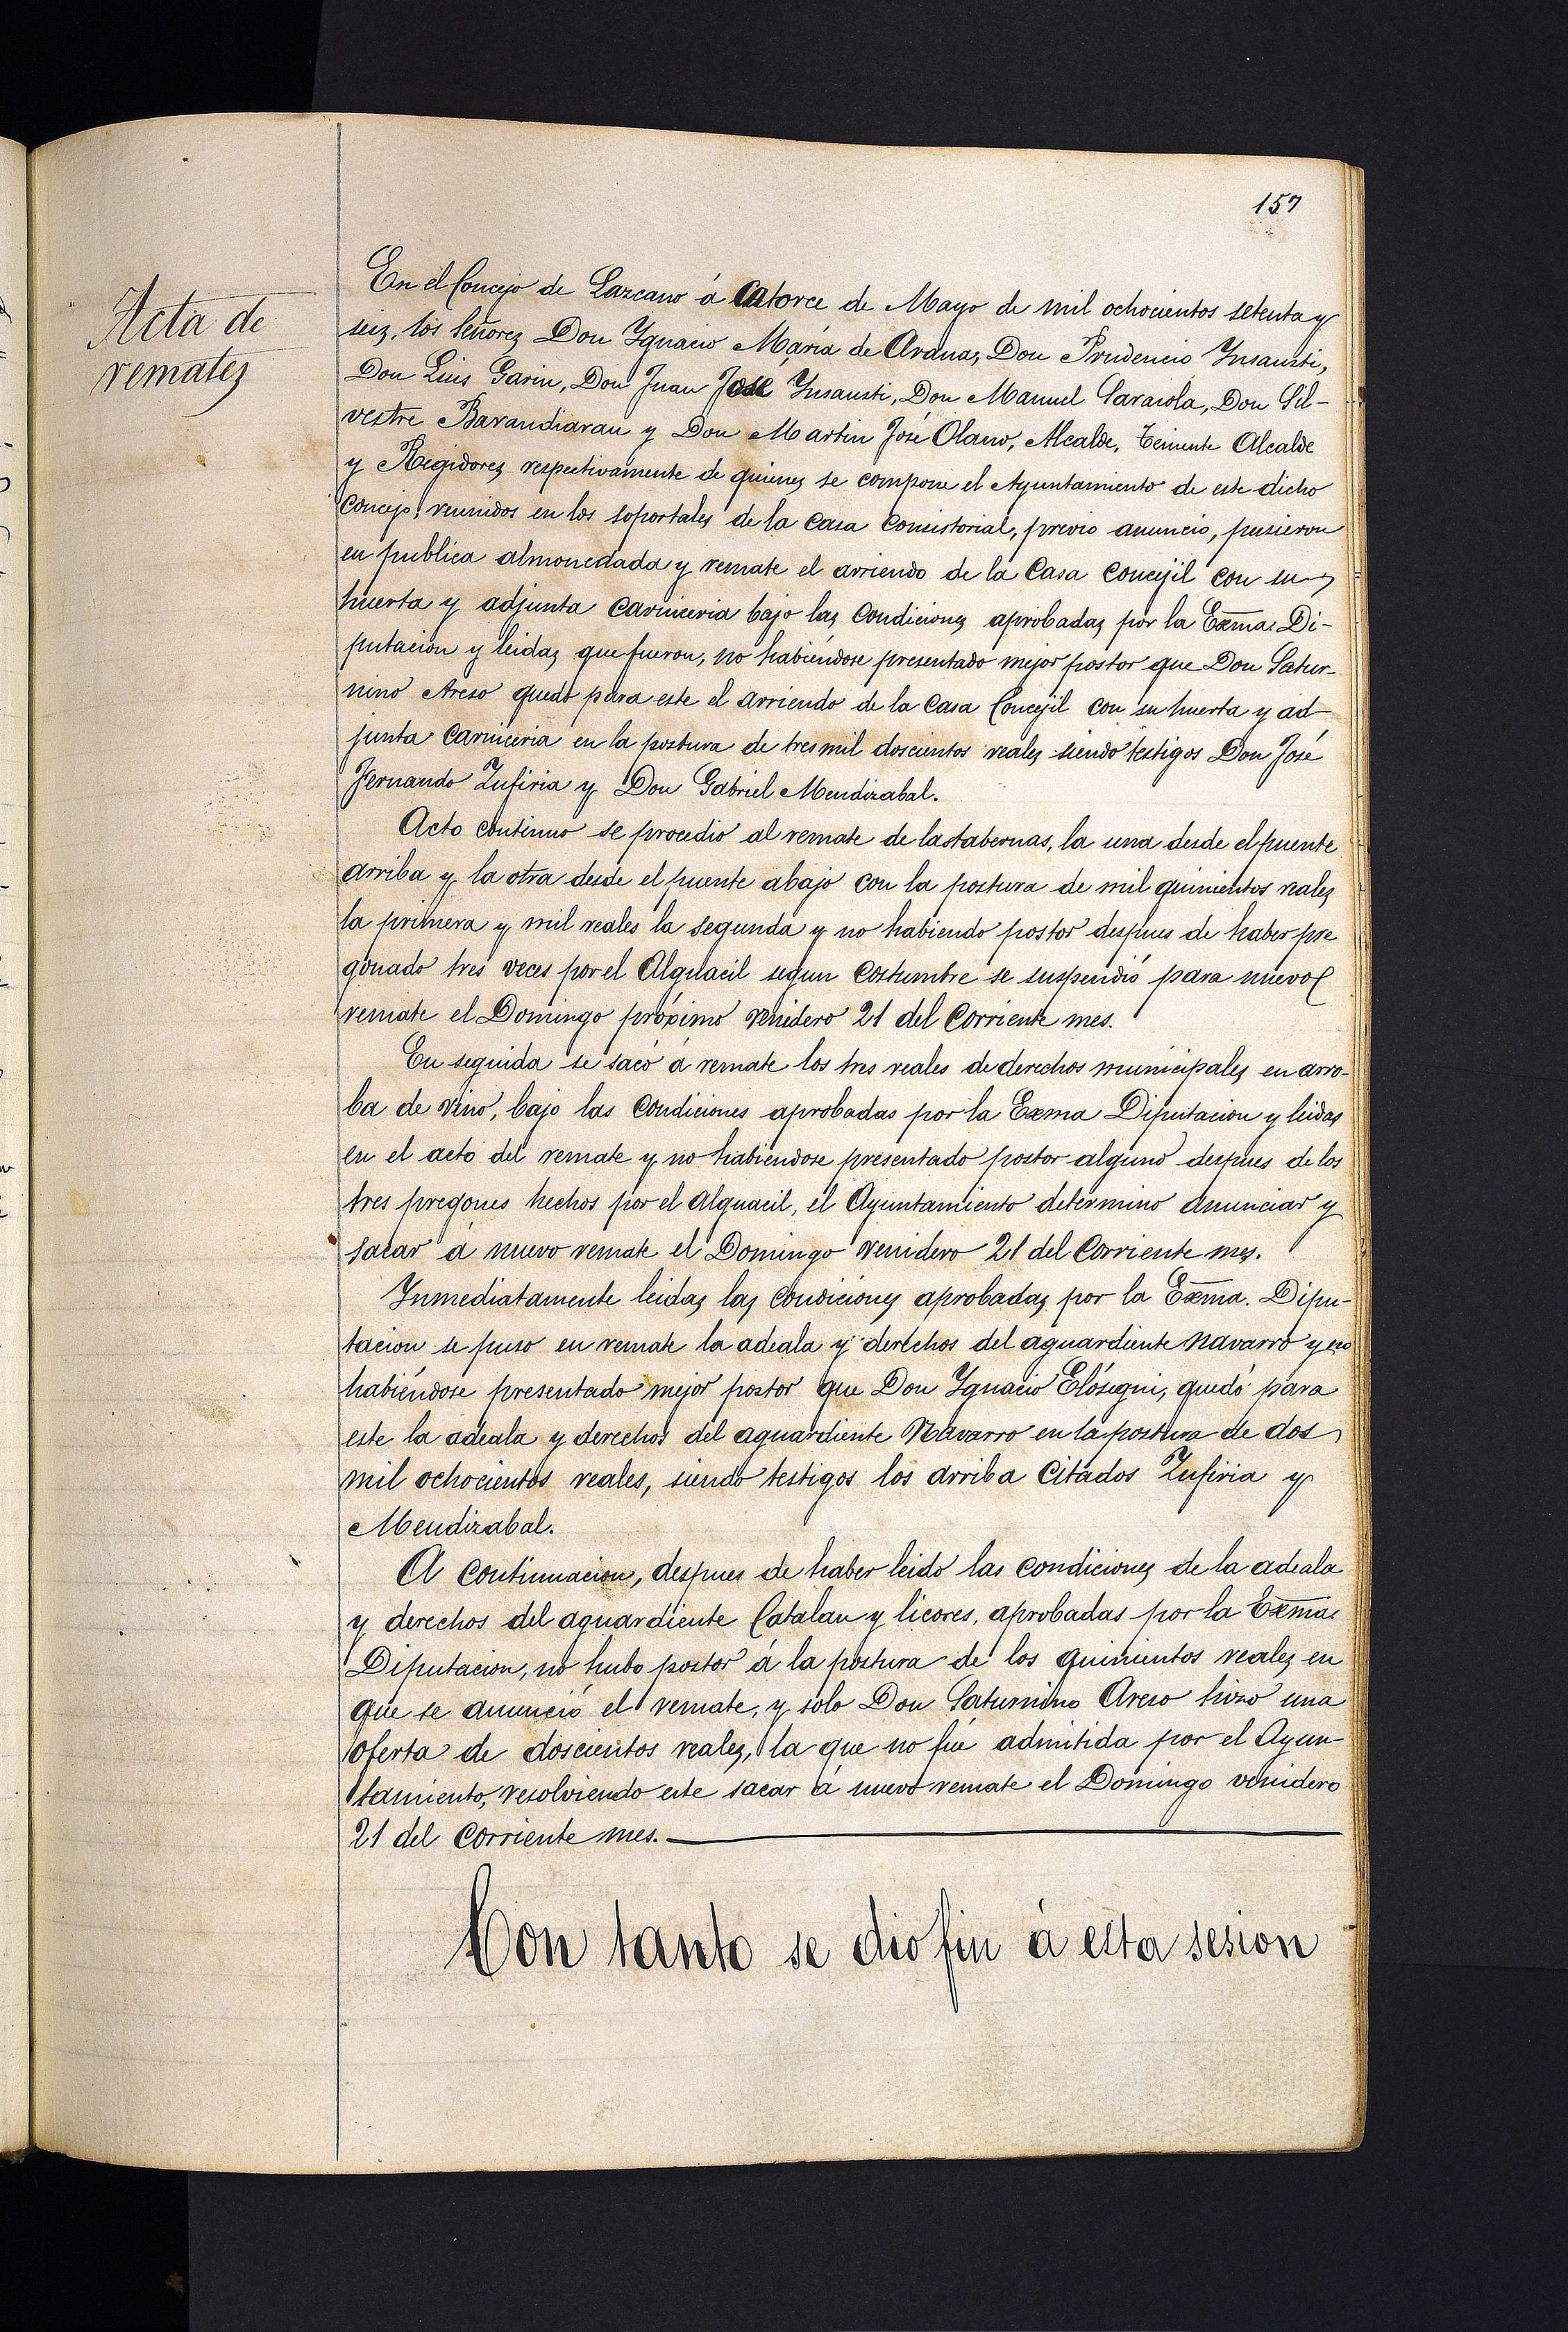 157
Acta de
remates
En el Concejo de Lazcano á catorce de Mayo de mil ochocientos setenta y
seis, los Señores Don Ygnacio María de Arana, Don Prudencio Ynsausti,
Don Luis Garin, Don Juan José Ynsausti, Don Manuel Saraiola, Don Sil-
vestre Barandiaran y Don Martin José Olano, Alcalde, Teniente Alcalde
y Regidores respectivamente de quienes se compone el Ayuntamiento de este dicho
concejo, reunidos en los soportales de la casa consistorial, previo anuncio, pusieron
en publica almonedada y remate el arriendo de la Casa concejil con su
huerta y adjunta carniceria bajo las condiciones aprobadas por la Exma. Di-
putacion y leidas que fueron, no habiéndose presentado mejor postor que Don Satur-
nino Areso quedó para este el arriendo de la Casa Concejil con su huerta y ad
junta carniceria en la postura de tres mil doscientos reales siendo testigos Don José
Fernando Zufiria y Don Gabriel Mendizabal.
Acto continuo se procedió al remate de las tabernas, la una desde el puente
arriba y la otra desde el puente abajo con la postura de mil quinientos reales
la primera y mil reales la segunda y no habiendo postor despues de haber pre
gonado tres veces por el Alguacil segun costumbre se suspendió para nuevo
remate el Domingo próximo venidero 21 del corriente mes.
En seguida se sacó á remate los tres reales de derechos municipales en arro-
ba de vino, bajo las condiciones aprobadas por la Exma Diputacion y leidas
en el acto del remate y no habiendose presentado postor alguno despues de los
tres pregones hechos por el alguacil, el Ayuntamiento determino anunciar y
sacar á nuevo remate el Domingo venidero 21 del corriente mes.
Ynmediatamente leidas las condiciones aprobadas por la Exma. Dipu-
tacion se puso en remate la adeala y derechos del aguardiente navarro y no
habiéndose presentado mejor postor que Don Ygnacio Elósegui, quedó para
este la adeala y derechos del aguardiente Navarro en la postura de dos
mil ochocientos reales, siendo testigos los arriba citados Zufiria y
Mendizabal.
A continuacion, despues de haber leido las condiciones de la adeala
y derechos del aguardiente Catalan y licores, aprobadas por la Exma.
Diputacion, no hubo postor á la postura de los quinientos reales en
que se anunció el remate, y solo Don Saturnino Areso hizo una
oferta de doscientos reales, la que no fué admitida por el Ayun-
tamiento, resolviendo este sacar á nuevo remate el Domingo venidero
21 del corriente mes.
Con tanto se dio fin á esta sesion